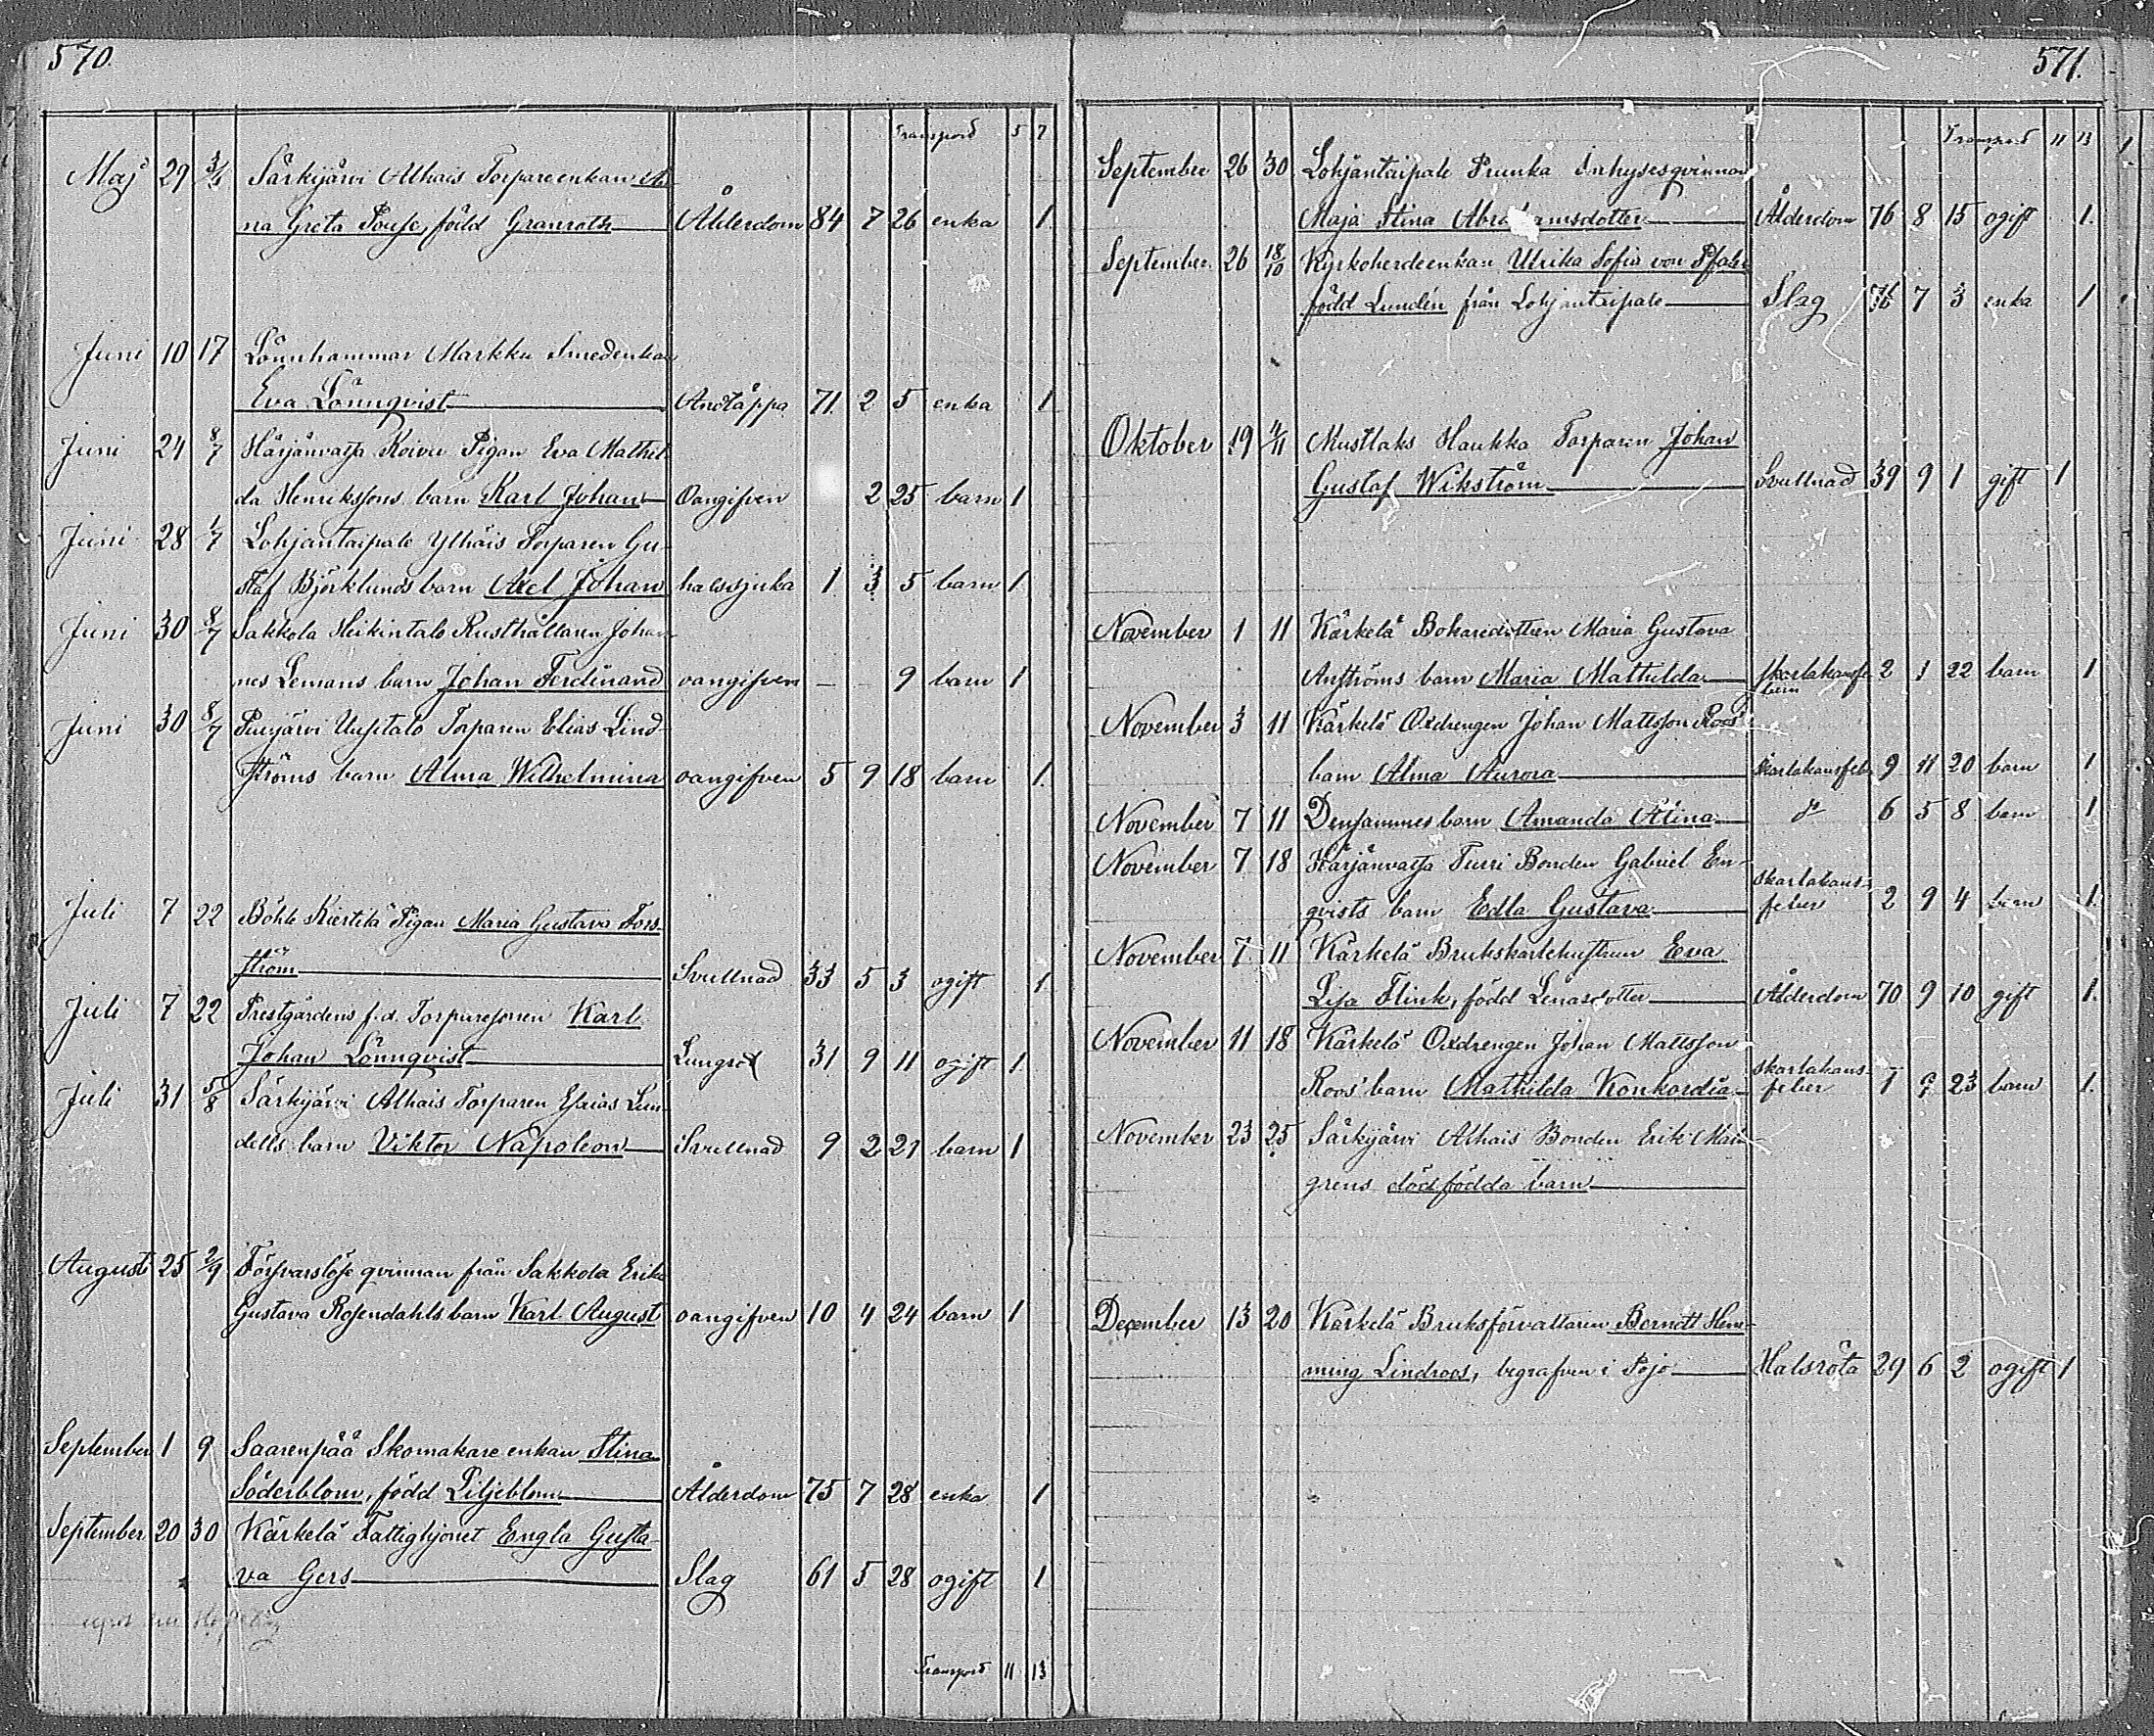 570.
Transport 5 7
Maj 29 3/6 Särkijärvi Alhais Torpareenkan An
na Greta Pouse, född Granroth Ålderdom 84 7 26 enka 1
Juni 10 17 Lönnhammar Markku Smedenkan
Eva Lönnqvist Andtäppa 71 2 5 enka 1
Juni 24 8/7 Härjänvatsa Koivu Pigan Eva Mathil
da Henrikssons barn Karl Johan Oangifven 2 25 barn 1
Juni 28 1/7 Lohjantaipale Ylhäis Torparen Gu-
staf Björklunds barn Axel Johan halssjuka 1 3 5 barn 1
Juni 30 8/7 Sakkola Heikintalo Rusthållaren Johan
nes Lemans barn Johan Ferdinand oangifven — 9 barn 1
Juni 30 8/7 Puujärvi Uusitalo Torparen Elias Lind-
ströms barn Alma Wilhelmina oangifven 5 9 18 barn 1.
Juli 7 22 Böhle Kierttilä Pigan Maria Gustava Fors-
ström Svullnad 33 5 3 ogift 1
Juli 7 22 Prestgårdens f.d. Torparesonen Karl
Johan Lönnqvist Lungsot 31 9 11 ogift 1
Juli 31 5/8 Särkijärvi Alhais Torparen Esaias Lin-
dells barn Viktor Napoleon Svullnad 9 2 21 barn 1
August 25 2/9 Försvarslöse qvinnan från Sakkola Erika
Gustava Rosendahls barn Karl August oangifven 10 4 24 barn 1
September 1 9 Saarenpää Skomakare enkan Stina
Söderblom, född Liljeblom Ålderdom 75 7 28 enka 1
September 20 30 Kärkelä Fattighjonet Engla Gusta-
va Gers Slag 61 5 28 ogift 1
Transport 11 13
571.
Transport 11 13
September 26 30 Lohjantaipale Prunka Inhysesqvinnan
Maja Stina Abrahamsdotter Ålderdom 76 8 15 ogift 1.
September 26 18/10 Kyrkoherdeenkan Ulrika Sofia von Pfaler
född Lundén från Lohjantaipale Slag 76 7 3 enka 1
Oktober 19 4/11 Mustlaks Haukka Torparen Johan
Gustaf Wikström Svullnad 39 9 1 gift 1
November 1 11 Kärkelä Bokaredottren Maria Gustava
Anströms barn Maria Mathilda skarlakansfe-
bern 2 1 22 barn 1
November 3 11 Kärkelä Oxdrengen Johan Mattsson Roos'
barn Alma Aurora Skarlakansfeber 9 11 20 barn 1
November 7 11 Densammes barn Amanda Alina do 6 5 8 barn 1
November 7 18 Härjänvatsa Turri Bonden Gabriel En-
qvists barn Edla Gustava Skarlakans-
feber 2 9 4 barn 1
November 7 11 Kärkelä Brukskarlehustrun Eva
Lisa Flink, född Lenasdotter Ålderdom 70 9 10 gift 1.
November 11 18 Kärkelä Oxdrengen Johan Mattsson
Roos' barn Mathilda Konkordia Skarlakans-
feber 1 9 23 barn 1.
November 23 25 Särkijärvi Alhais Bonden Erik Malm
grens dödfödda barn
December 13 20 Kärkelä Bruksförvaltaren Berndt Hem-
ming Lindroos, begrafven i Pojo Halsröta 29 6 2 ogift 1